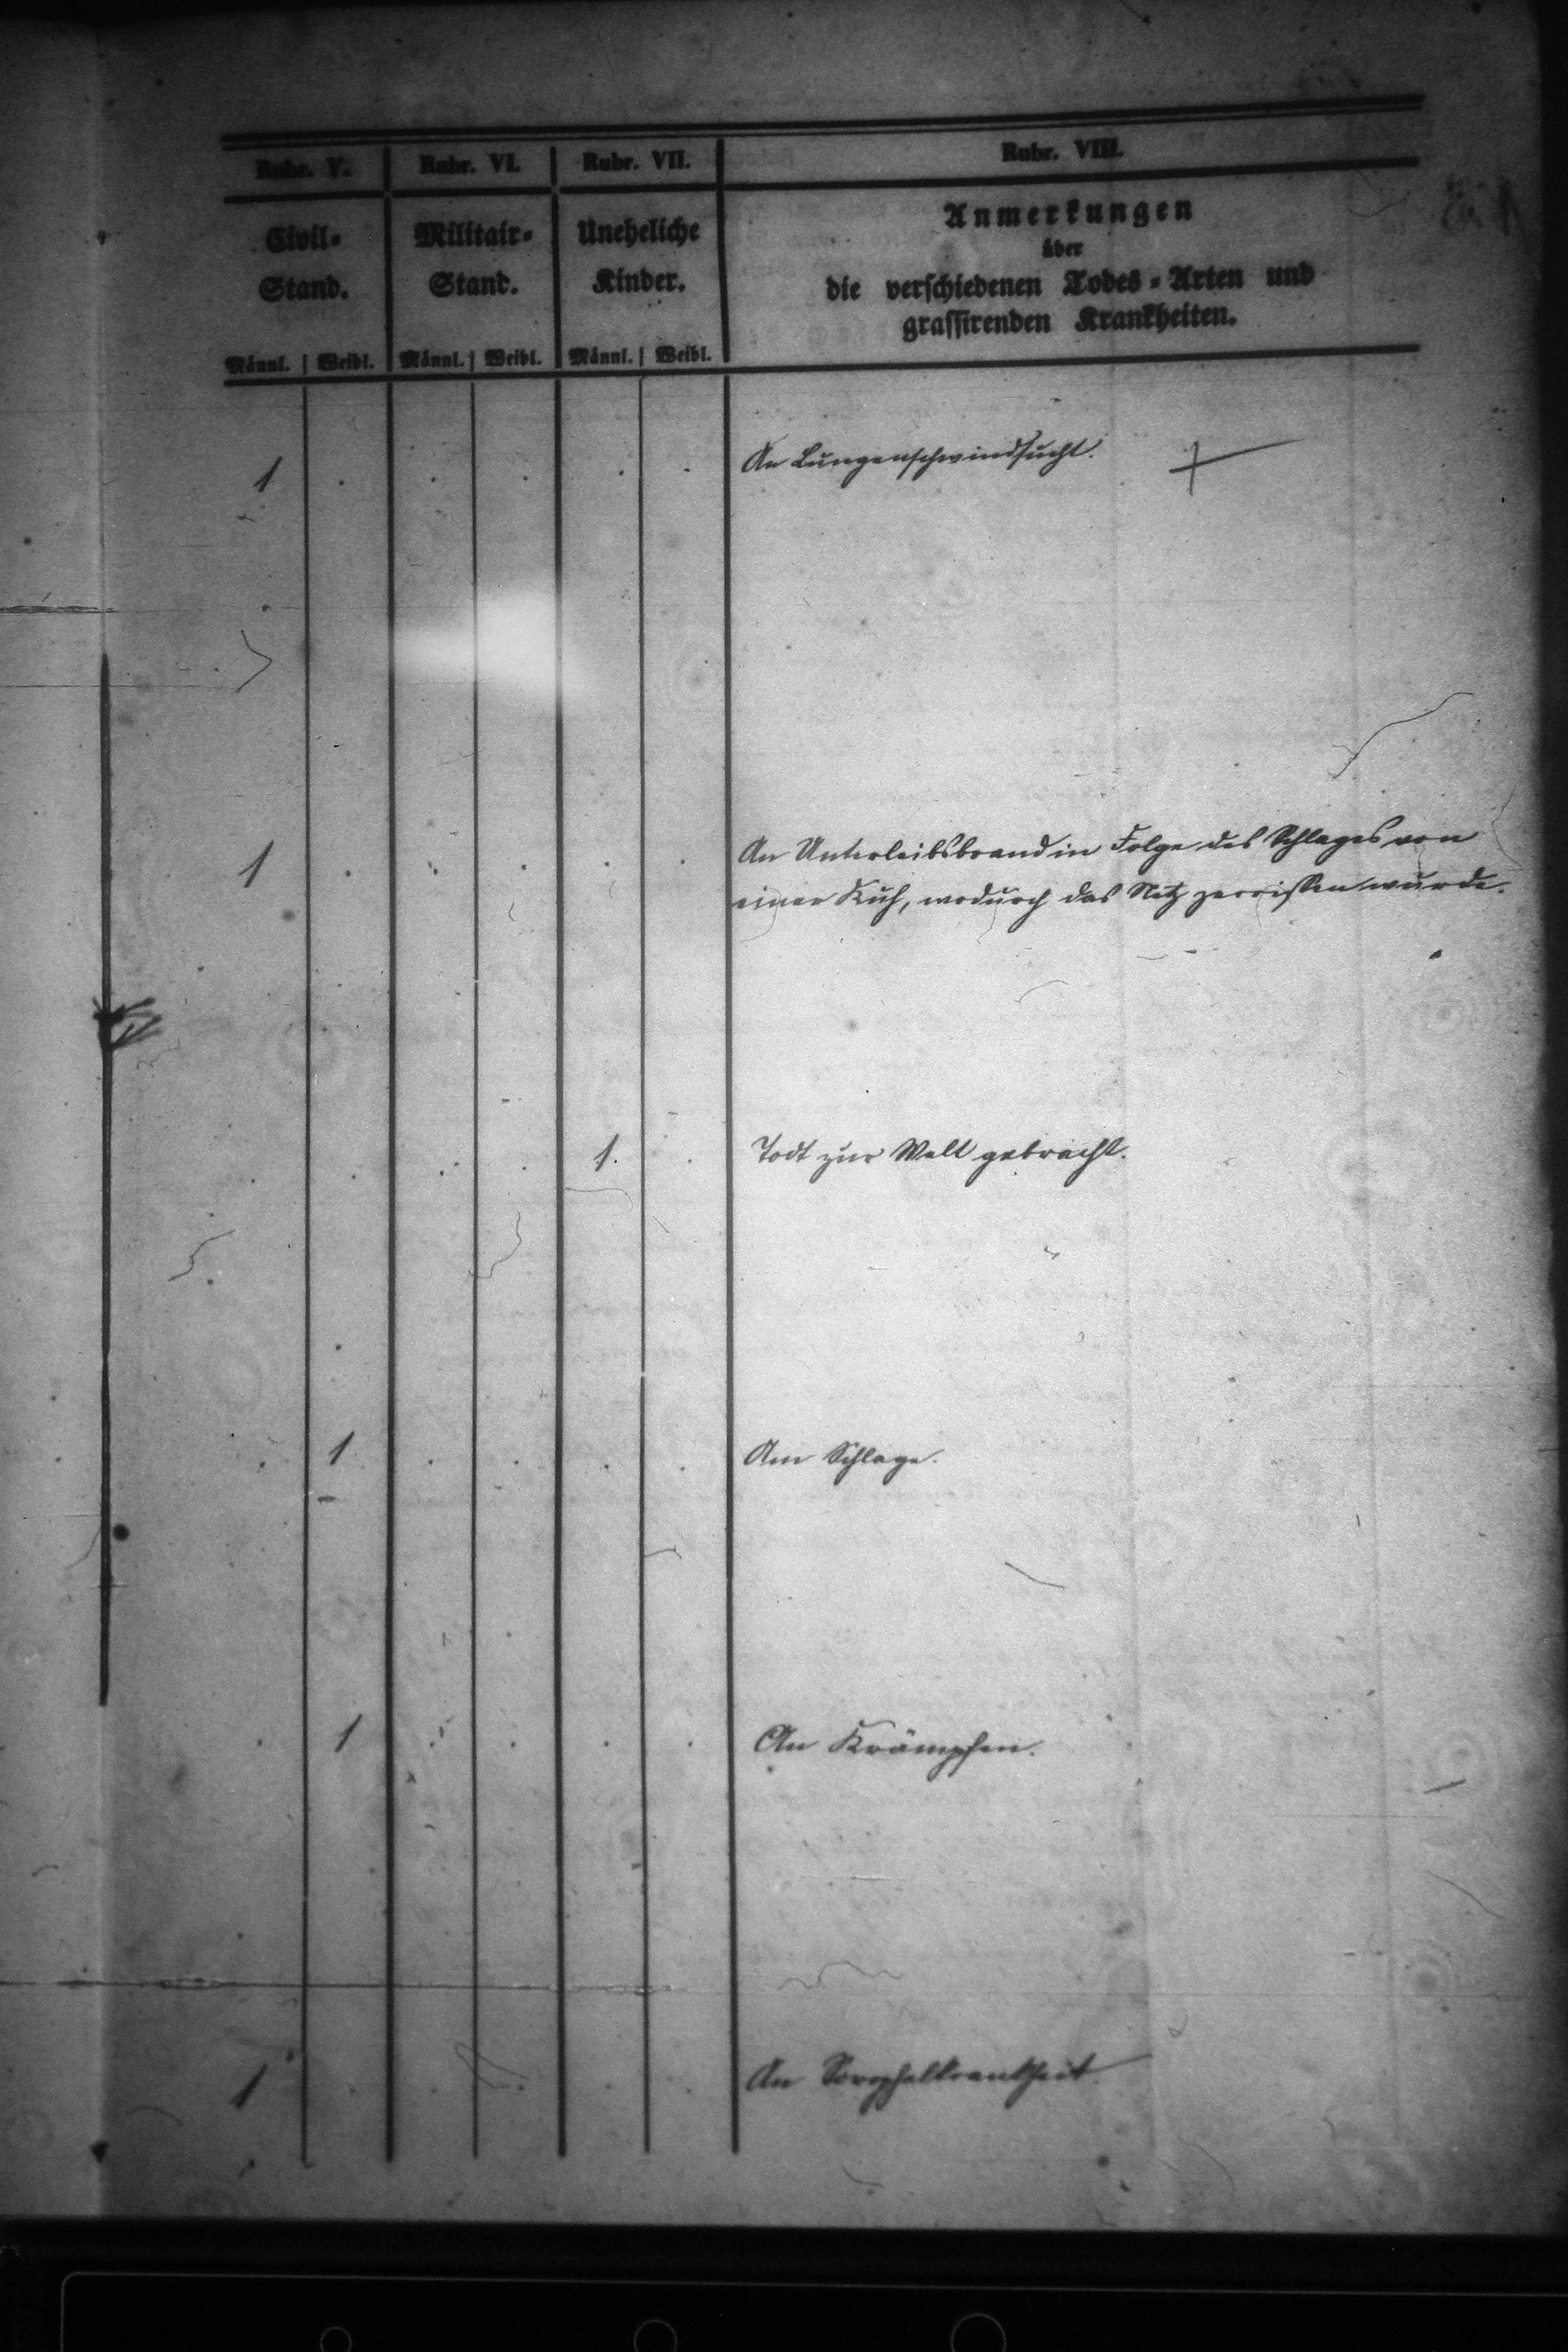 Rubr. V. Rubr. VI. Rubr. VII. Rubr. VIII.
Civil- Militair- Uneheliche Anmerkungen
Stand. Stand. Kinder. über
die verschiedenen Todes-Arten und
grassirenden Krankheiten.
Männl. Weibl. Männl. Weibl. Männl. Weibl.
1 . . . . . An Lungenschwindsucht.
1 . . . . . An Unterleibsbrand in Folge des Schlages von
einer Kuh, wodurch das Netz zerrissen wurde.
. . . . 1. . Todt zur Welt gebracht.
. 1 . . . . Am Schlage.
. 1 . . . . An Krämpfen.
1 . . . . . An Scrophelkrankheit